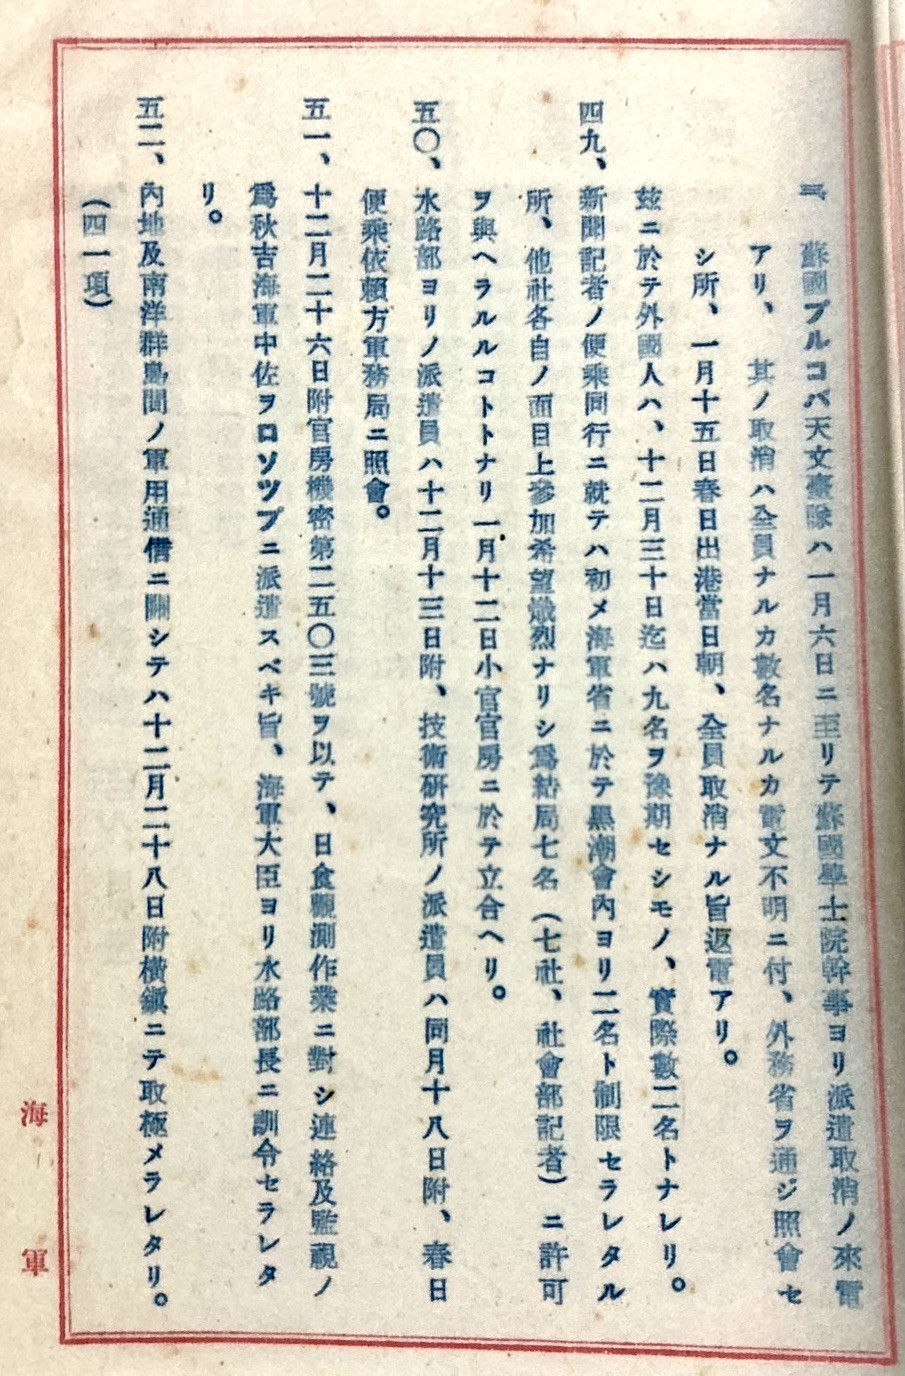 三、蘇國プルコバ天文臺隊ハ一月六日ニ至リテ蘇國學士院幹事ヨリ派遣取消ノ來電
アリ、其ノ取消ハ全員ナルカ數名ナルカ電文不明ニ付、外務省ヲ通ジ照會セ
シ所、一月十五日春日出港當日朝、全員取消ナル旨返電アリ。
玆ニ於テ外國人ハ、十二月三十日迄ハ九名ヲ豫期セシモノ、實際數二名トナレリ。
四九、新聞記者ノ便乘同行ニ就テハ初メ海軍省ニ於テ黑潮會內ヨリ二名ト制限セラレタル
所、他社各自ノ面目上參加希望熾烈ナリシ爲結局七名(七社、社會部記者)ニ許可
ヲ與ヘラルルコトトナリ一月十二日小官官房ニ於テ立合ヘリ。
五〇、水路部ヨリノ派遣員ハ十二月十三日附、技術研究所ノ派遣員ハ同月十八日附、春日
便乘依賴方軍務局ニ照會。
五一、十二月二十六日附官房機密第二五〇三號ヲ以テ、日食觀測作業ニ對シ連絡及監視ノ
爲秋吉海軍中佐ヲロソツプニ派遣スベキ旨、海軍大臣ヨリ水路部長ニ訓令セラレタ
リ。
五二、內地及南洋群島間ノ軍用通信ニ關シテハ十二月二十八日附橫鎭ニテ取極メラレタリ。
(四一項)
海軍